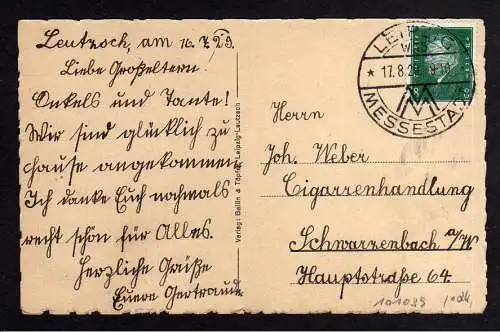 Leutzsch, am 16.7.29.
Liebe Großeltern.
Onkels und Tante!
Wir sind glücklich zu
hause angekommen.
Ich danke Euch nochmals
recht schön für Alles.
Herzliche Grüße
Euere Gertraude
Verlag: Ballin & Töpfer, Leipzig-Leutzsch
LEIPZIG
17.8.29
MESSESTADT
Herrn
Joh. Weber
Cigarrenhandlung
Schwarzenbach a/W
Hauptstraße 64.
101089